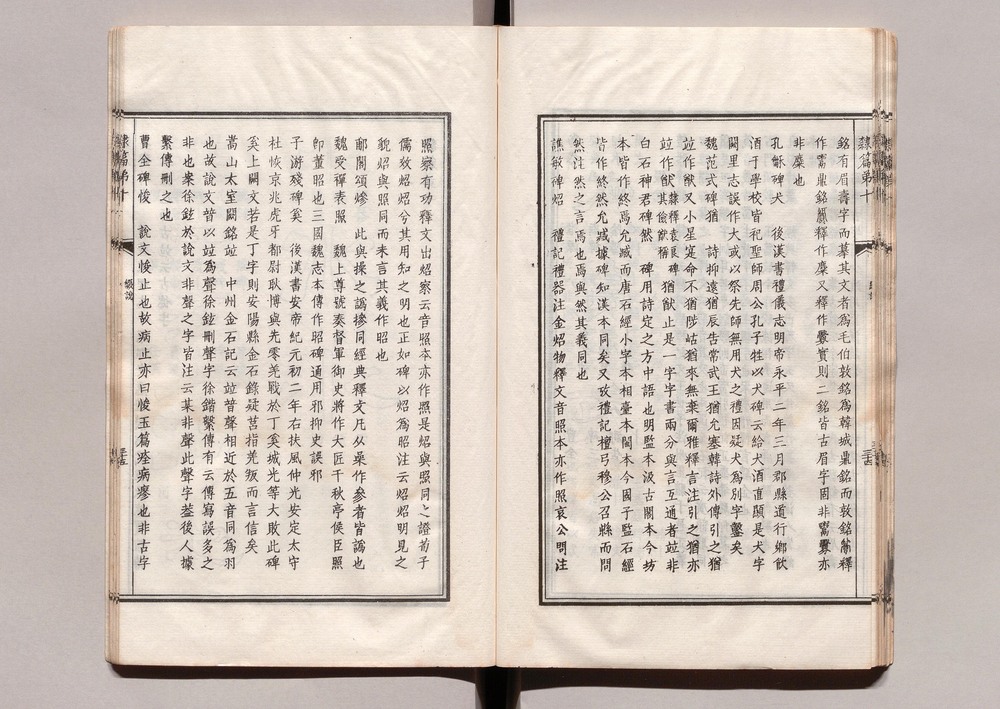 隸篇弟十
銘有眉壽字而摹其文者為毛伯敦銘為韓城鼎銘而敦銘 釋
作 鼎銘 釋作麋又釋作 實則二銘皆古眉字固非 亦
非麋也
孔龢碑犬 後漢書禮儀志明帝永平二年三月郡縣道行鄉飲
酒于學校皆祀聖師周公孔子牲以犬碑云給犬酒直顯是犬字
闕里志誤作大或以祭先師無用犬之禮因疑犬為別字鑿矣
魏范式碑猶 詩抑遠猶辰告常武王猶允塞韓詩外傳引之猶
竝作猷又小星寔命不猶陟岵猶來無棄爾雅釋言注引之猶亦
竝作猷隸釋袁良碑其儉猷稱猶猷止是一字字書兩分與言互通者竝非
白石神君碑然 碑用詩定之方中語也明監本汲古閣本今坊
本皆作終焉允臧而唐石經小字本相臺本閩本今國子監石經
皆作終然允臧據碑知漢本同矣又攷禮記檀弓穆公召縣而問
然注然之言焉也焉與然其義同也
譙敏碑炤 禮記禮器注金炤物釋文音照本亦作照哀公問注
照察有功釋文出炤察云音照本亦作照是炤與照同之證荀子
儒效炤炤兮其用知之明也正如碑以炤為昭注云炤炤明見之
皃炤與照同而未言其義作昭也
郙閣頌㜗 此與操之譌摻同經典釋文凡从喿作參者皆譌也
魏受禪表照 魏上尊號奏督軍御史將作大匠千秋亭侯臣照
即董昭也三國魏志本傳作昭碑通用邪抑史誤邪
子游殘碑奚 後漢書安帝紀元初二年右扶風仲光安定太守
杜恢京兆虎牙都尉耿博與先零羌戰於丁奚城光等大敗此碑
奚上闕文若是丁字則安陽縣金石錄疑莒指羌叛而言信矣
嵩山太室闕銘竝 中州金石記云竝普聲相近於五音同為羽
也故說文普以竝為聲徐鉉刪聲字徐鍇繫傳有云傳寫誤多之
非也案徐鉉於說文非聲之字皆注云某非聲此聲字葢後人據
繫傳刪之也
曹全碑悛 說文悛止也故病止亦曰悛玉篇痊病瘳也非古字
隸篇弟十